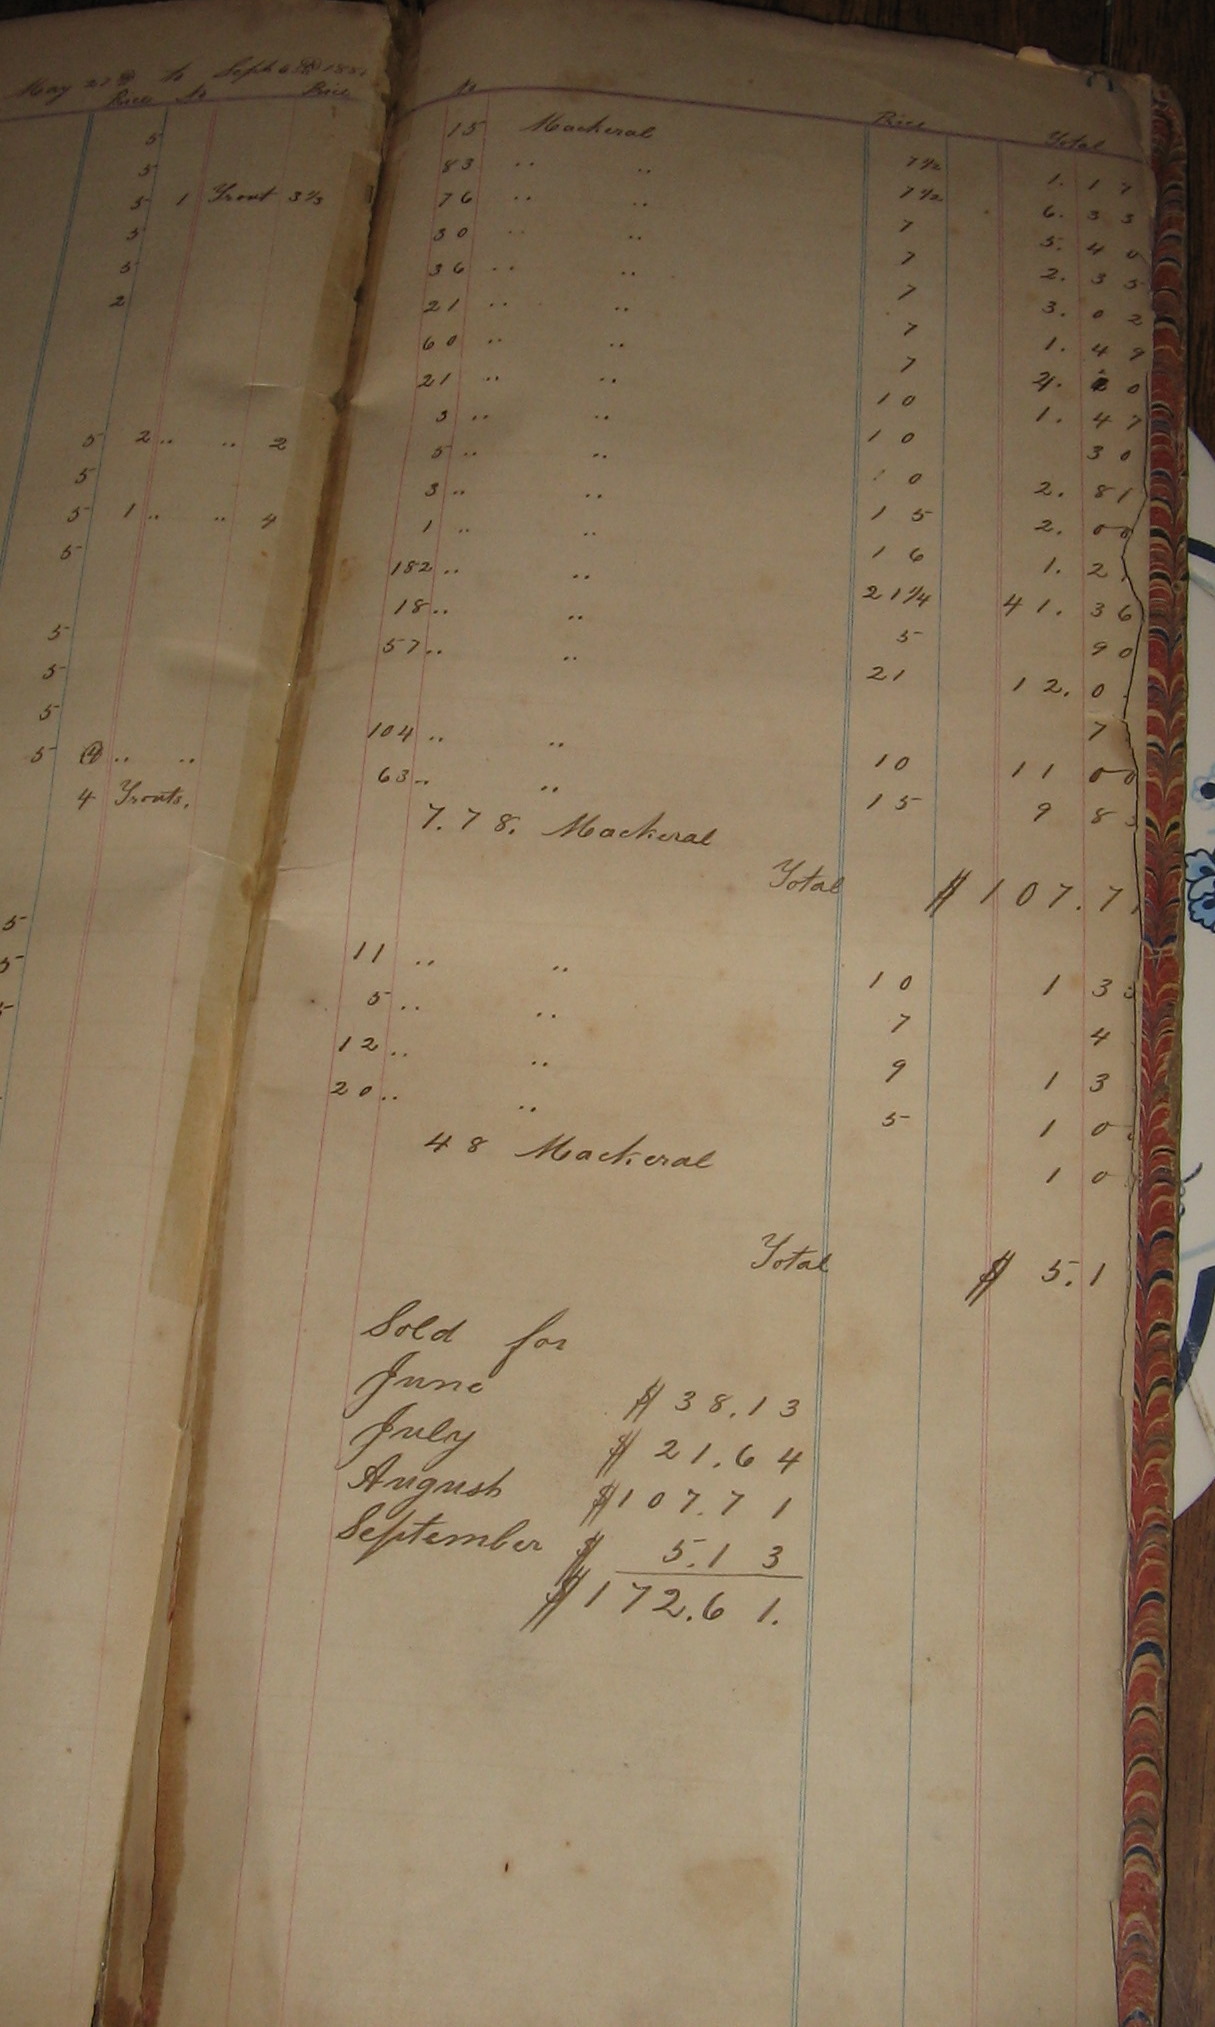 May 27th to Sept 6th
Price No Price
5
5
5 1 Trout 3⅓
5
5
2
5 2 .. .. 2
5
5 1 .. .. 4
5
5
5
5
5 4 .. ..
4 Trouts.
5
5
5
No Price Total
15 Mackeral 7½ 1.17
83 .. .. 7½ 6.33
76 .. .. 7 5.40
30 .. .. 7 2.35
36 .. .. 7 3.02
21 .. .. 7 1.49
60 .. .. 7 4.20
21 .. .. 10 1.47
3 .. .. 10 30
5 .. .. 10 2.81
3 .. .. 15 2.00
1 .. .. 16 1.2
182 .. .. 21¼ 41.36
18 .. .. 5 90
57 .. .. 21 12.0
7
104 .. .. 10 11 00
63 .. .. 15 9 83
7.78. Mackeral
Total $107.71
11 .. .. 10 1 33
5 .. .. 7 4
12 .. .. 9 1 3
20 .. .. 5 1 0
48 Mackeral 1 0
Total $5.1
Sold for
June $38.13
July $21.64
August $107.71
September $5.13
$172.61.